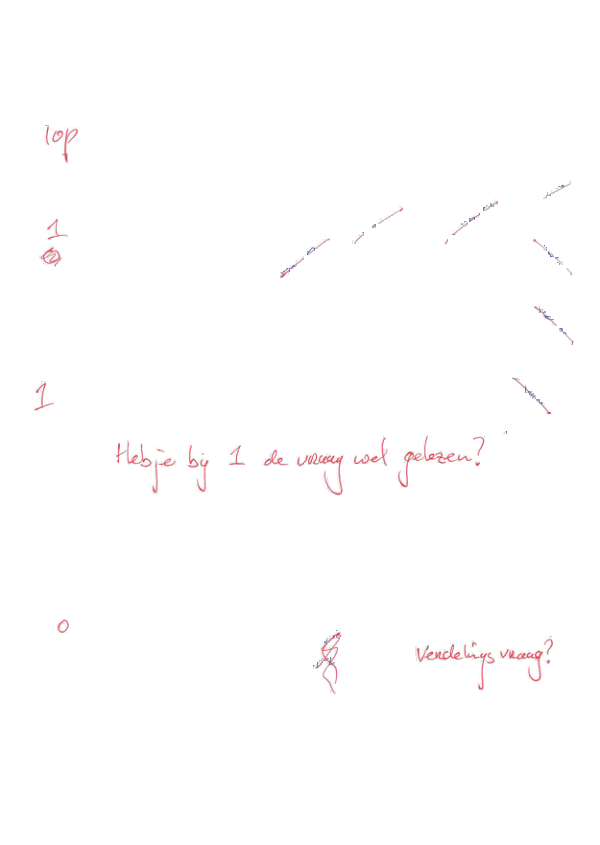 top
1
1
Heb je bij 1 de vraag wel gelezen?
0
Verdelings vraag?